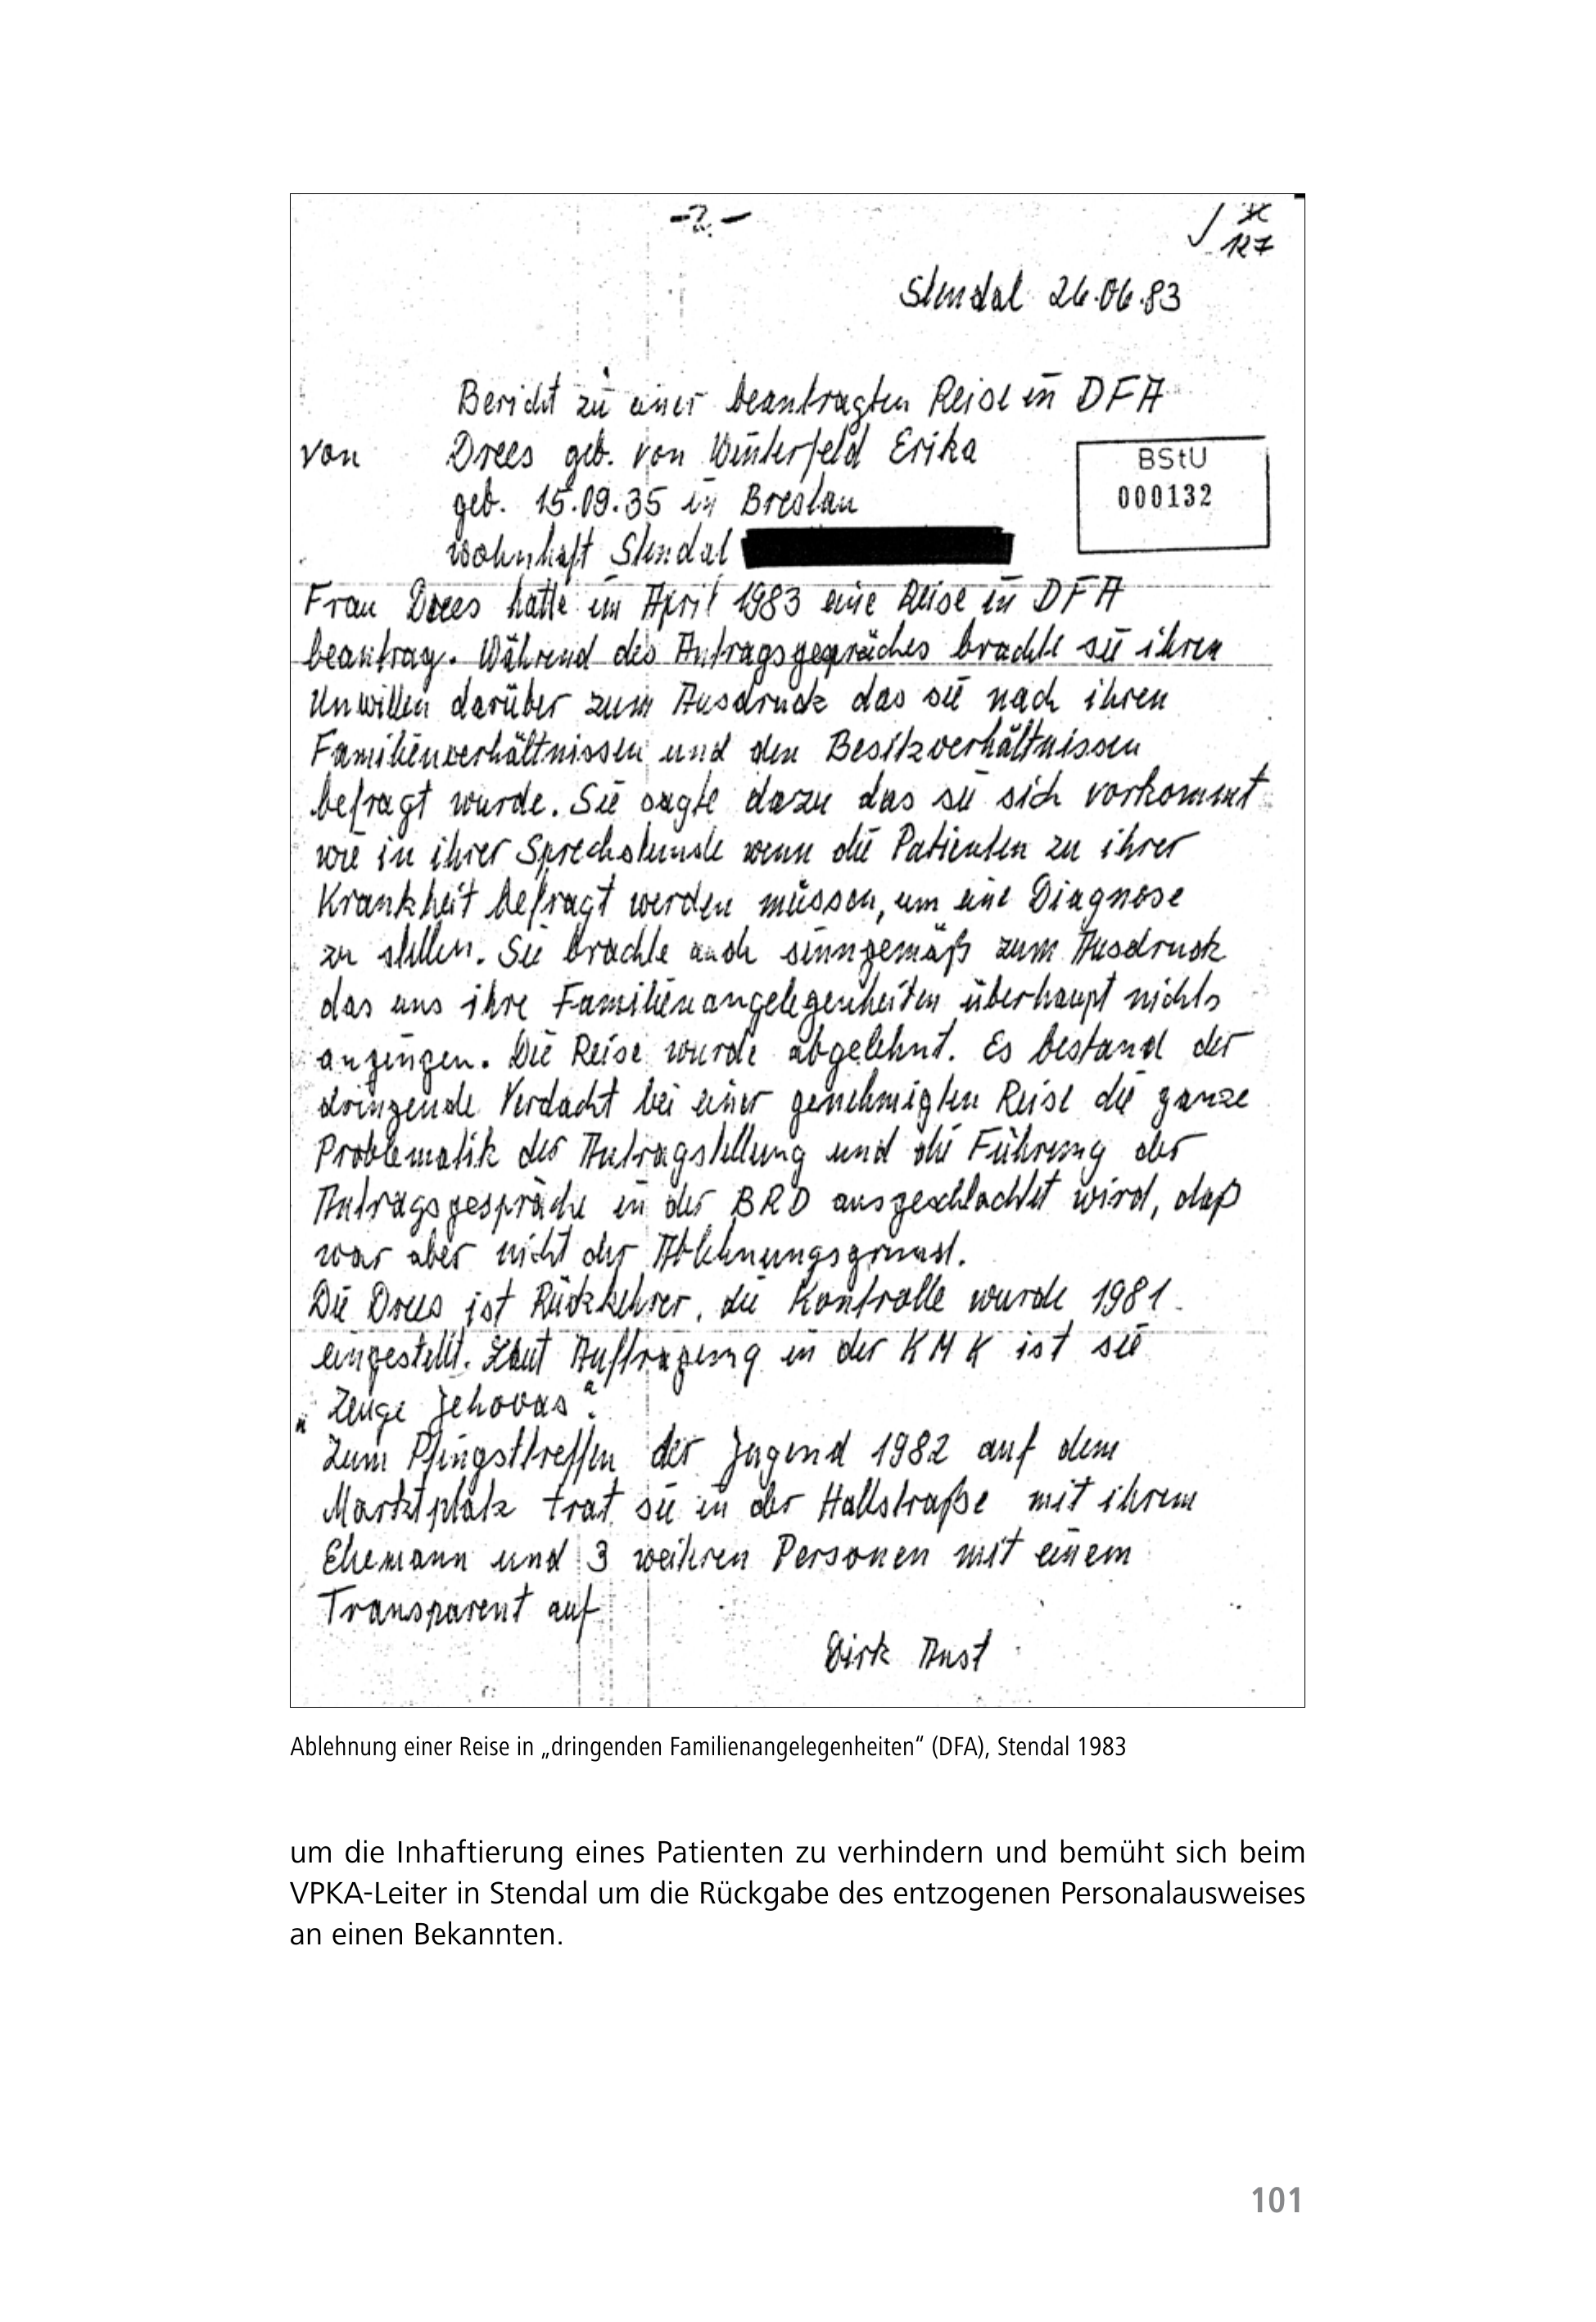 -2-
127
Stendal 26.06.83
Bericht zu einer beantragten Reise in DFA
von Drees geb. von Winterfeld Erika
geb. 15.09.35 in Breslau
wohnhaft Stendal
BStU
000132
Frau Drees hatte im April 1983 eine Reise in DFA
beantrag. Während des Antragsgespräches brachte sie ihren
Unwillen darüber zum Ausdruck das sie nach ihren
Familienverhältnissen und den Besitzverhältnissen
befragt wurde. Sie sagte dazu das sie sich vorkommt
wie in ihrer Sprechstunde wenn die Patienten zu ihrer
Krankheit befragt werden müssen, um eine Diagnose
zu stellen. Sie brachte auch sinngemäß zum Ausdruck
das uns ihre Familienangelegenheiten überhaupt nichts
anzingen. Die Reise wurde abgelehnt. Es bestand der
dringende Verdacht bei einer genehmigten Reise die ganze
Problematik der Antragstellung und die Führung der
Antragsgespräche in der BRD ausgeschlachtet wird, daß
war aber nicht der Ablehnungsgrund.
Die Drees ist Rückkehrer, die Kontrolle wurde 1981
eingestellt. Laut Auftragung in der KMK ist sie
"Zeuge Jehovas".
Zum Pfingsttreffen der Jugend 1982 auf dem
Marktplatz trat sie in der Hallstraße mit ihrem
Ehemann und 3 weitren Personen mit einem
Transparent auf
Dirk Aust
Ablehnung einer Reise in „dringenden Familienangelegenheiten“ (DFA), Stendal 1983
um die Inhaftierung eines Patienten zu verhindern und bemüht sich beim
VPKA-Leiter in Stendal um die Rückgabe des entzogenen Personalausweises
an einen Bekannten.
101